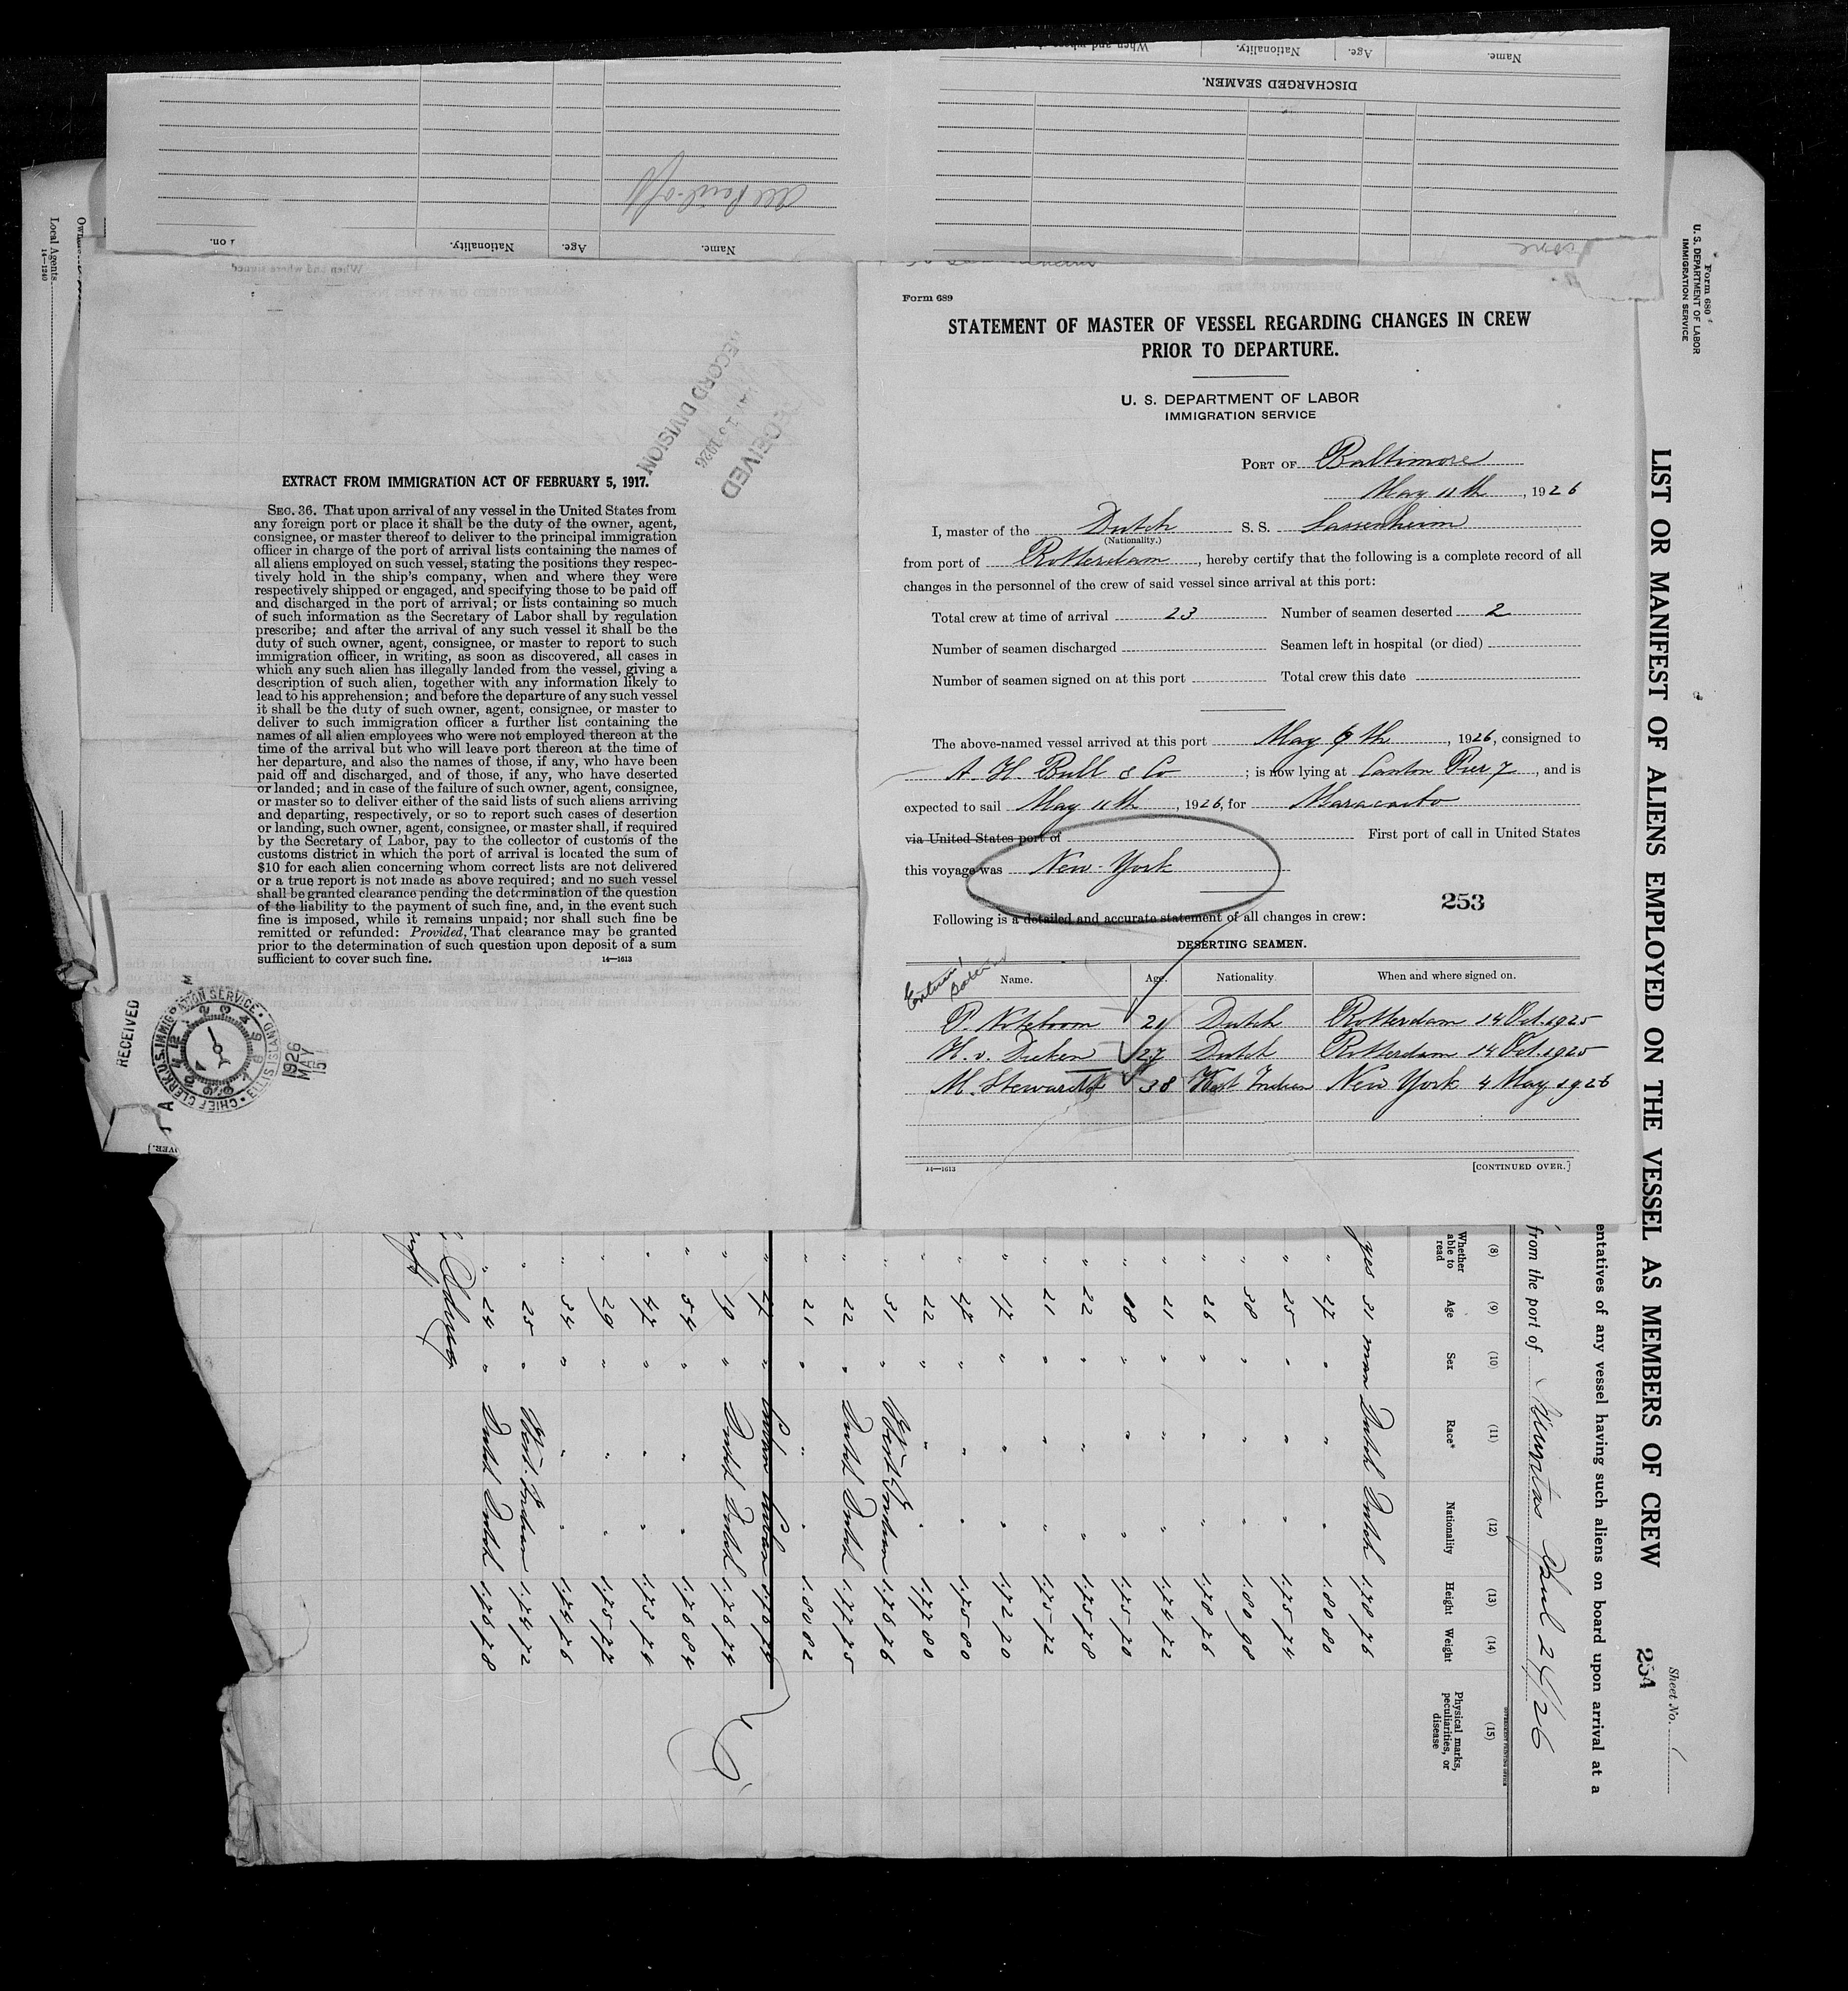 Name.
Age.
Nationality.
When and where
DISCHARGED SEAMEN.
All Paid-off
Name.
Age.
Nationality.
None
When and where signed
RECEIVED
1926
RECORD DIVISION
EXTRACT FROM IMMIGRATION ACT OF FEBRUARY 5, 1917.
SEC. 36. That upon arrival of any vessel in the United States from
any foreign port or place it shall be the duty of the owner, agent,
consignee, or master thereof to deliver to the principal immigration
officer in charge of the port of arrival lists containing the names of
all aliens employed on such vessel, stating the positions they respec-
tively hold in the ship's company, when and where they were
respectively shipped or engaged, and specifying those to be paid off
and discharged in the port of arrival; or lists containing so much
of such information as the Secretary of Labor shall by regulation
prescribe; and after the arrival of any such vessel it shall be the
duty of such owner, agent, consignee, or master to report to such
immigration officer, in writing, as soon as discovered, all cases in
which any such alien has illegally landed from the vessel, giving a
description of such alien, together with any information likely to
lead to his apprehension; and before the departure of any such vessel
it shall be the duty of such owner, agent, consignee, or master to
deliver to such immigration officer a further list containing the
names of all alien employees who were not employed thereon at the
time of the arrival but who will leave port thereon at the time of
her departure, and also the names of those, if any, who have been
paid off and discharged, and of those, if any, who have deserted
or landed; and in case of the failure of such owner, agent, consignee,
or master so to deliver either of the said lists of such aliens arriving
and departing, respectively, or so to report such cases of desertion
or landing, such owner, agent, consignee, or master shall, if required
by the Secretary of Labor, pay to the collector of customs of the
customs district in which the port of arrival is located the sum of
$10 for each alien concerning whom correct lists are not delivered
or a true report is not made as above required; and no such vessel
shall be granted clearance pending the determination of the question
of the liability to the payment of such fine, and, in the event such
fine is imposed, while it remains unpaid; nor shall such fine be
remitted or refunded: Provided, That clearance may be granted
prior to the determination of such question upon deposit of a sum
sufficient to cover such fine.
14—1613
RECEIVED
CHIEF CLERK, U.S. IMMIGRATION SERVICE • ELLIS ISLAND
1926
MAY
15
Local Agents
14—1240
Form 689
STATEMENT OF MASTER OF VESSEL REGARDING CHANGES IN CREW
PRIOR TO DEPARTURE.
U. S. DEPARTMENT OF LABOR
IMMIGRATION SERVICE
PORT OF Baltimore
May 11th, 1926
I, master of the Dutch S. S. Sassenheim
(Nationality.)
from port of Rotterdam, hereby certify that the following is a complete record of all
changes in the personnel of the crew of said vessel since arrival at this port:
Total crew at time of arrival 23 Number of seamen deserted 2
Number of seamen discharged Seamen left in hospital (or died)
Number of seamen signed on at this port Total crew this date
The above-named vessel arrived at this port May 9th, 1926, consigned to
A. H. Bull & Co; is now lying at Canton Pier 7, and is
expected to sail May 11th, 1926, for Maracaibo
via United States port of First port of call in United States
this voyage was New-York
253
Following is a detailed and accurate statement of all changes in crew:
DESERTING SEAMEN.
Name. Age. Nationality. When and where signed on.
P. Noteboom 21 Dutch Rotterdam 14 Oct. 1925
H. v. Dieken 27 Dutch Rotterdam 14 Oct. 1925
M. Stewardt 38 West Indian New York 4 May 1926
14—1613
[CONTINUED OVER.]
Form 680
U. S. DEPARTMENT OF LABOR
IMMIGRATION SERVICE
Sheet No. 1
LIST OR MANIFEST OF ALIENS EMPLOYED ON THE VESSEL AS MEMBERS OF CREW
254
entatives of any vessel having such aliens on board upon arrival at a
from the port of Nuevitas April 29/26
(8) (9) (10) (11) (12) (13) (14) (15)
Whether able to read Age Sex Race* Nationality Height Weight Physical marks, peculiarities, or disease
yes 31 man Dutch Dutch 1.78 76
" 27 " " " 1.80 80
" 25 " " " 1.75 74
" 38 " " " 1.80 98
" 26 " " " 1.78 76
" 21 " " " 1.74 72
" 38 " " " 1.75 70
" 22 " " " 1.75 78
" 21 " " " 1.75 72
" 17 " " " 1.72 70
" 27 " " " 1.75 80
" 22 " " " 1.77 80
" 31 " West Indian 1.76 76
" 22 " Dutch Dutch 1.77 75
" 21 " " " 1.80 82
" 27 " Cuban Cuban 1.76 74
" 19 " Dutch Dutch 1.76 74
" 54 " " " 1.76 84
" 47 " " " 1.75 74
" 29 " " " 1.75 77
" 34 " " " 1.74 76
" 25 " West. Indian 1.74 72
" 24 " Dutch Dutch 1.76 78